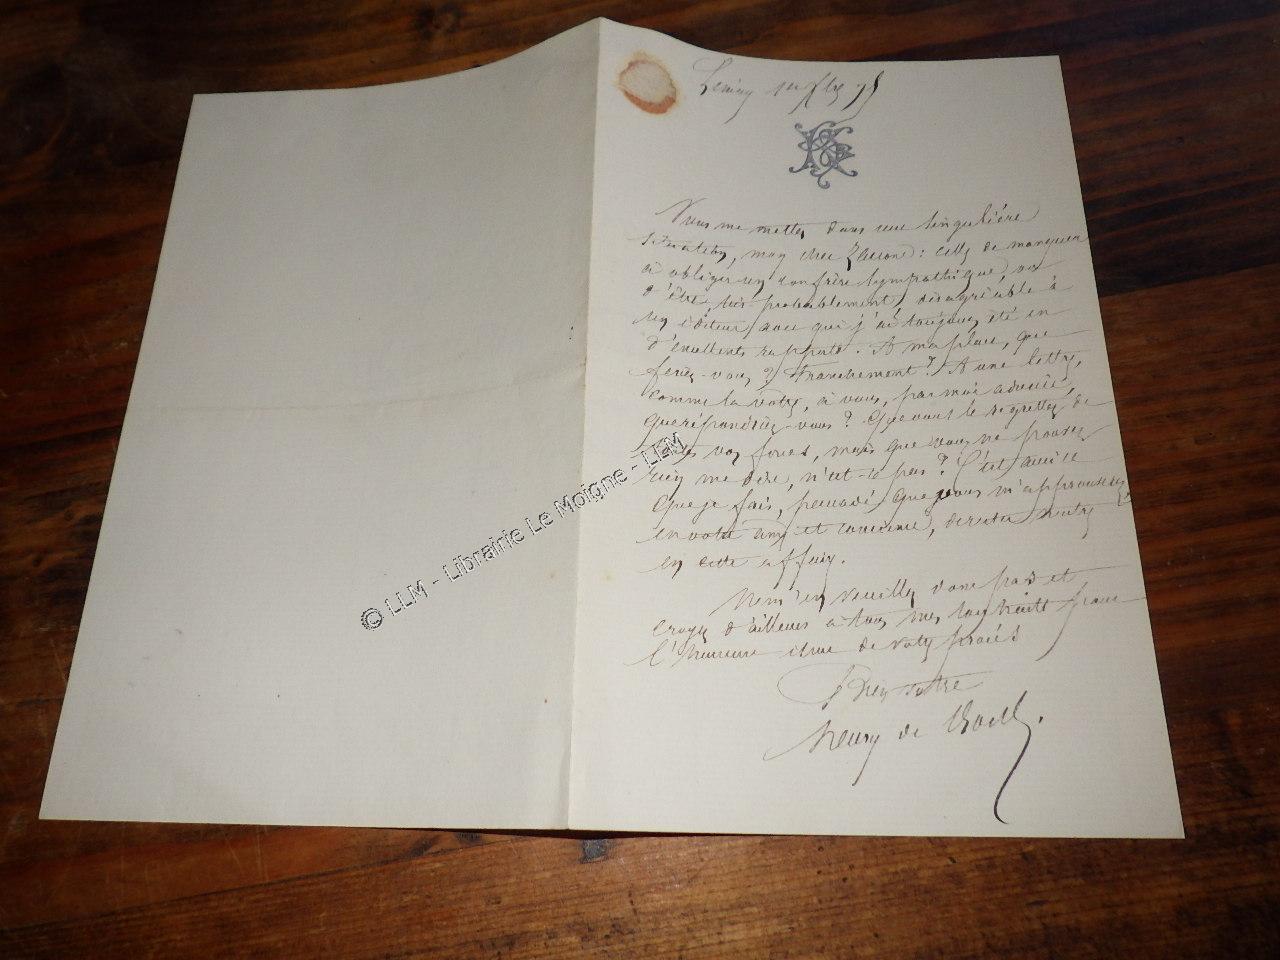 Vous me mettez dans une singulière
situation, mon cher Zaccone : celle de manquer
à obliger un confrère sympathique, ou
d'être, très-probablement, désagréable à
un éditeur avec qui j'ai toujours été en
d'excellents rapports. A ma place, que
feriez-vous ? Franchement ? A une lettre,
comme la vôtre, à vous, par moi adressée,
que répondriez-vous ? Que vous le regrettez de
toutes vos forces, mais que vous ne pouvez
rien me dire, n'est-ce pas ? C'est aussi ce
que je fais, persuadé que vous m'approuverez
en votre âme et conscience, de rester neutre
en cette affaire.
Ne m'en veuillez donc pas et
croyez d'ailleurs à tous mes souhaits pour
l'heureuse issue de votre procès
Bien vôtre
Henry de Kock.
© LLM - Librairie Le Moigne - LLM